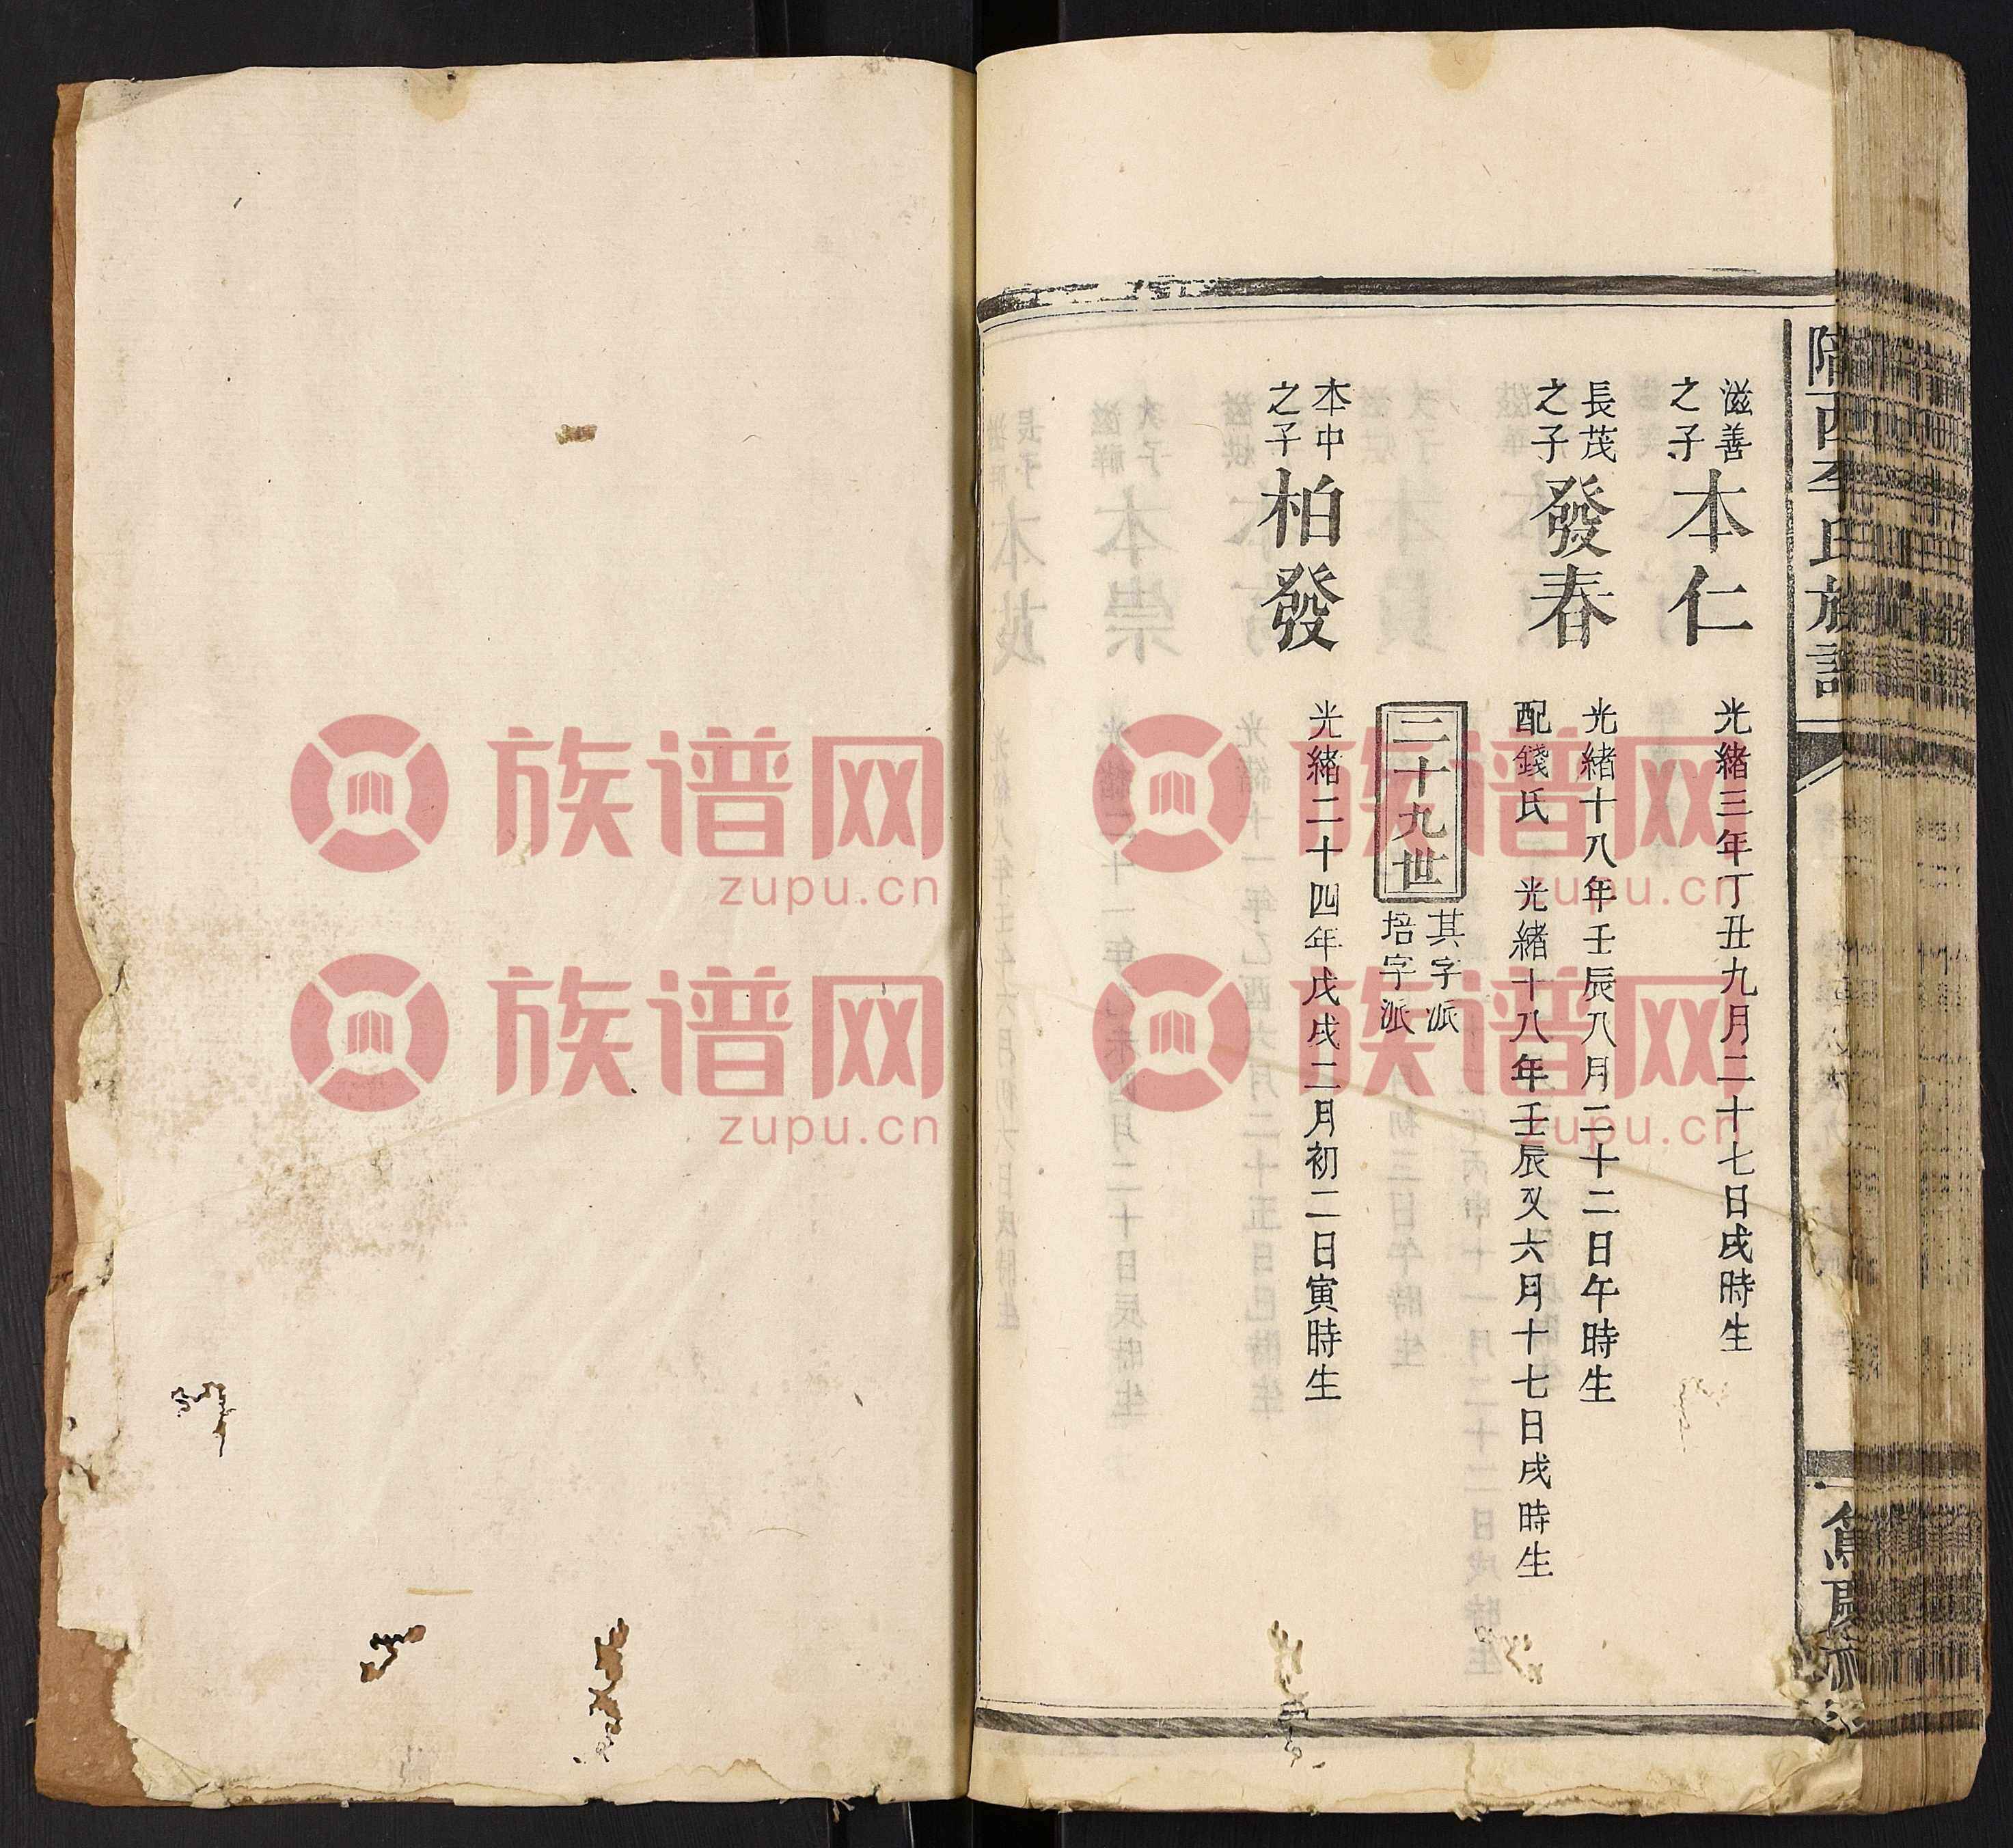 隴西李氏族譜
滋善
之子
本仁
光緒三年丁丑九月二十七日戌時生
長茂
之子
發春
光緒十八年壬辰八月二十二日午時生
配錢氏 光緒十八年壬辰又六月十七日戌時生
二十九世
其字派
培字派
本中
之子
柏發
光緒二十四年戊戌二月初二日寅時生
族谱网
zupu.cn
族谱网
zupu.cn
族谱网
zupu.cn
族谱网
zupu.cn